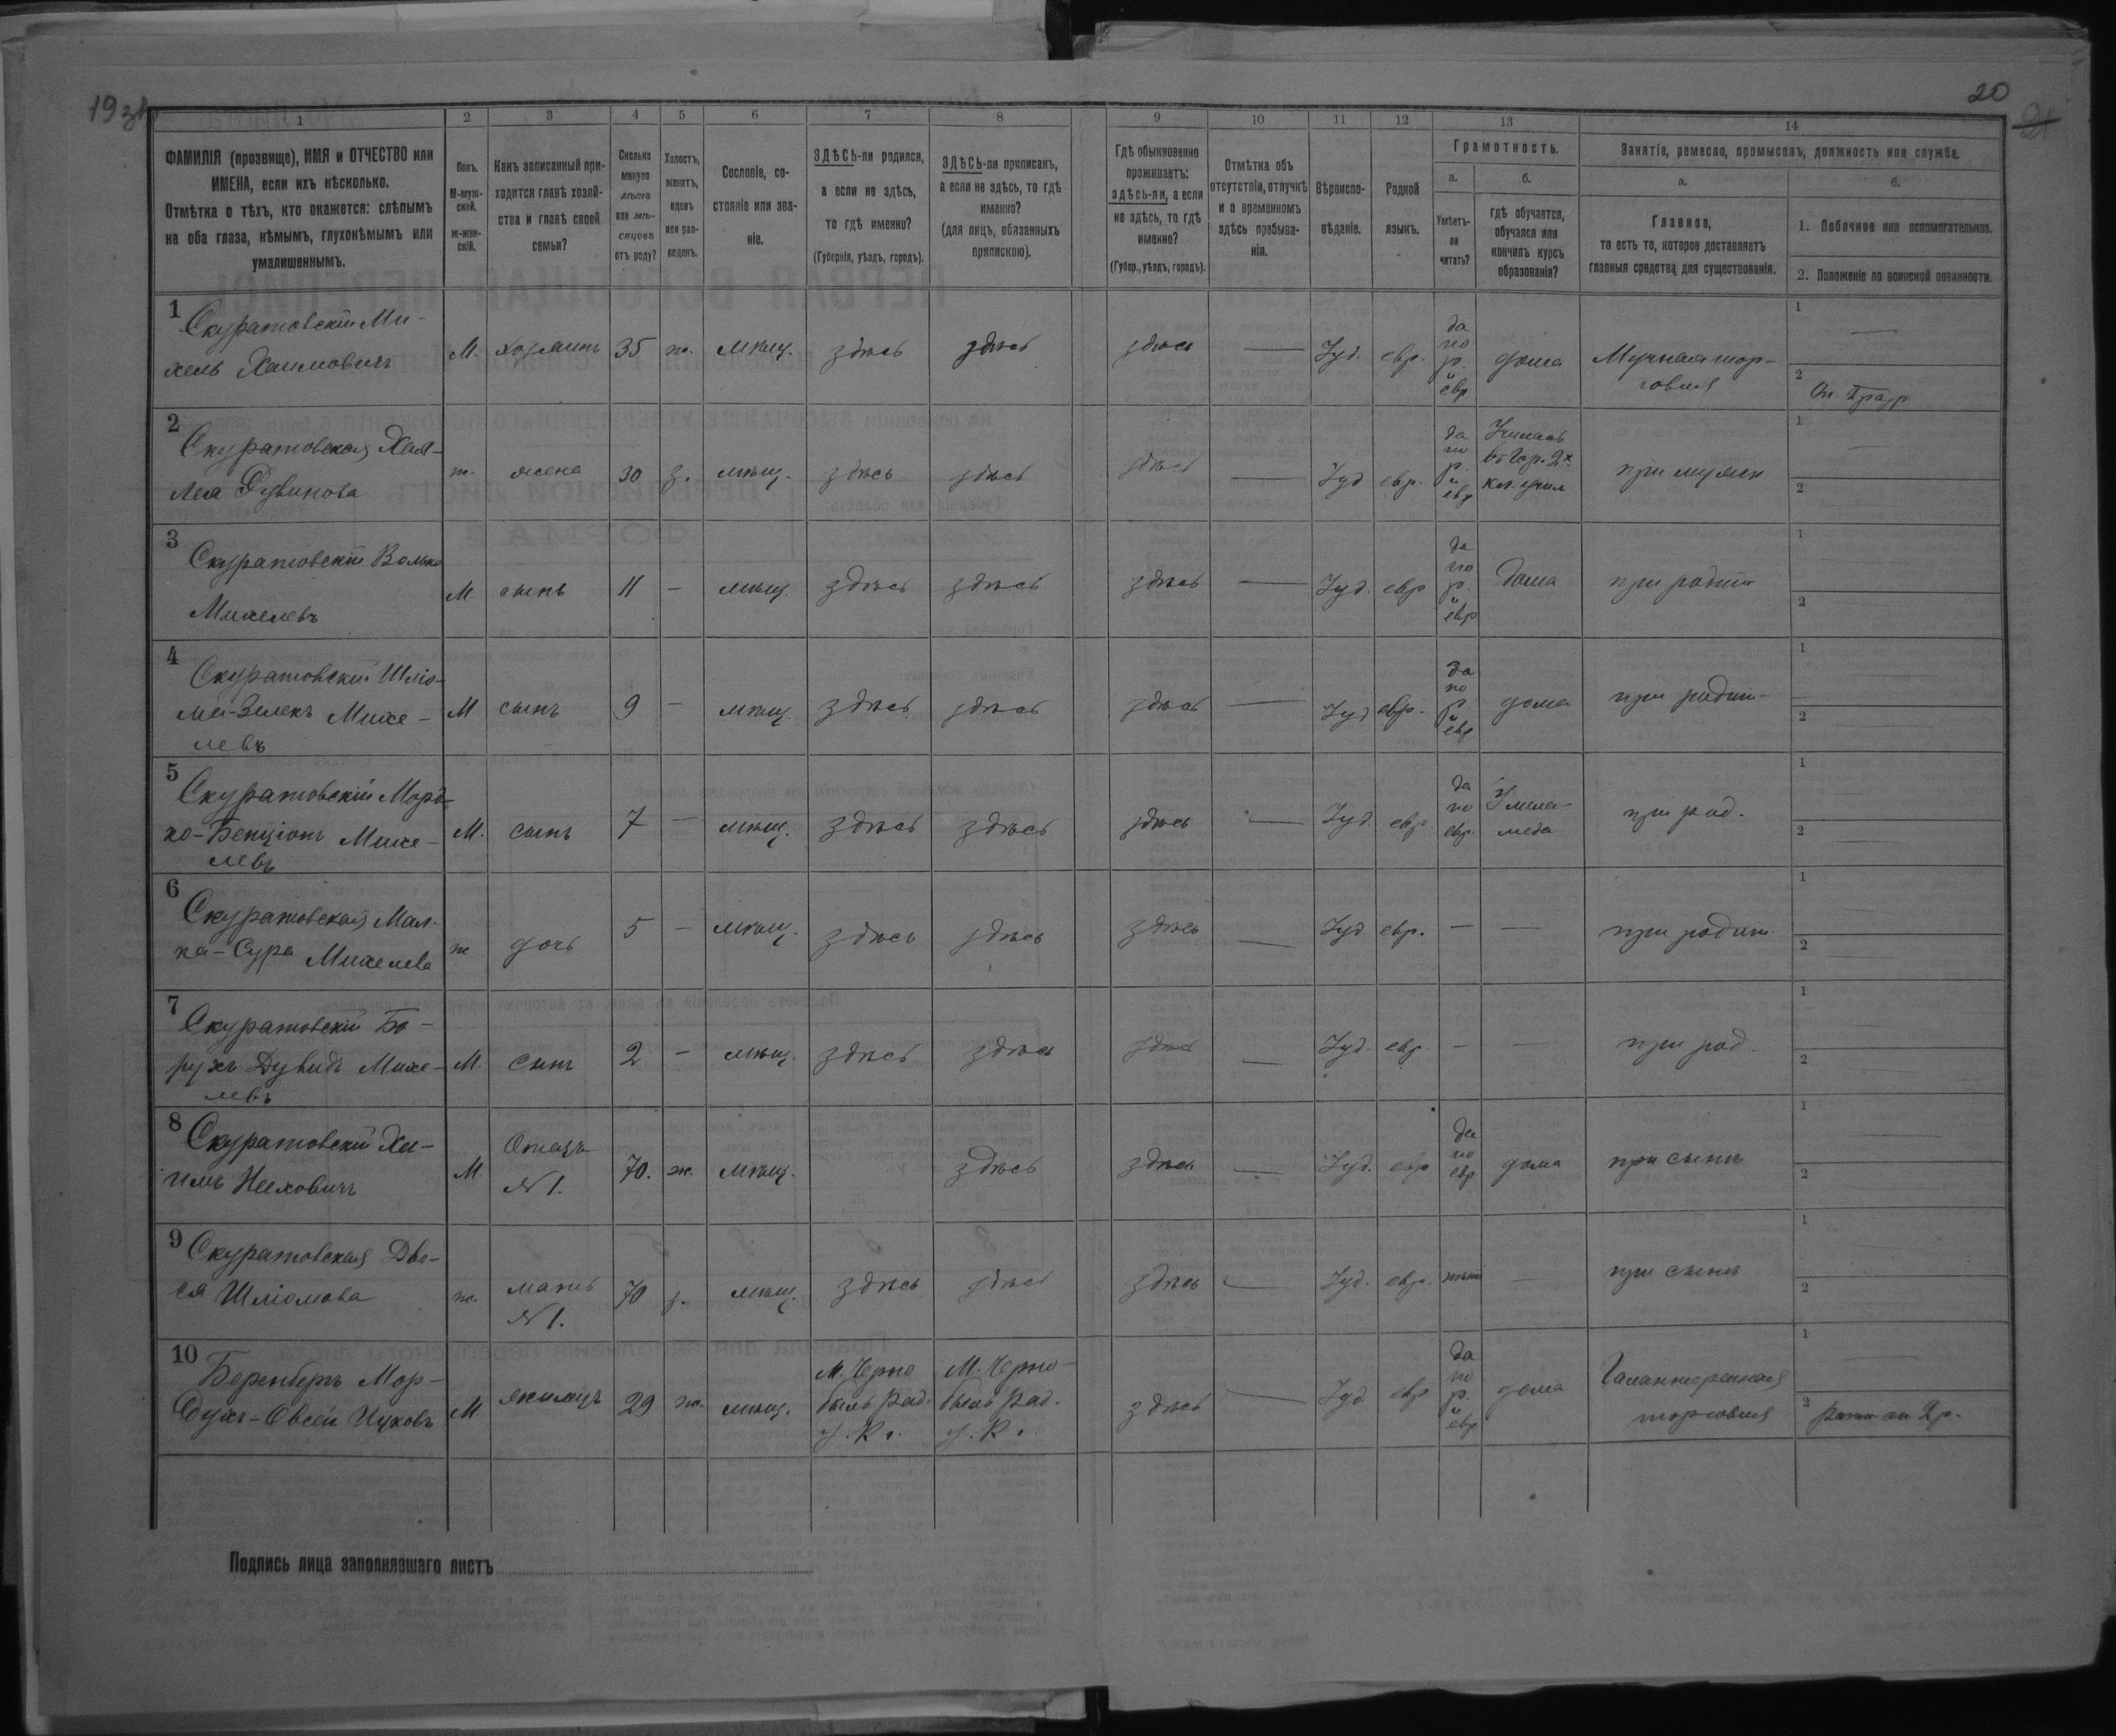 20
19 зв
21
1 2 3 4 5 6 7 8 9 10 11 12 13 14
ФАМИЛІЯ (прозвище), ИМЯ и ОТЧЕСТВО или
ИМЕНА, если ихъ нѣсколько.
Отмѣтка о тѣхъ, кто окажется: слѣпымъ
на оба глаза, нѣмымъ, глухонѣмымъ или
умалишеннымъ.
Полъ.
М-муж-
ской.
ж-жен-
скій.
Какъ записанный при-
ходится главѣ хозяй-
ства и главѣ своей
семьи?
Сколько
минуло
лѣтъ
или мѣ-
сяцевъ
отъ роду?
Холостъ,
женатъ,
вдовъ
или раз-
веденъ.
Сословіе, со-
стояніе или зва-
ніе.
ЗДѢСЬ-ли родился,
а если не здѣсь,
то гдѣ именно?
(Губернія, уѣздъ, городъ).
ЗДѢСЬ-ли приписанъ,
а если не здѣсь, то гдѣ
именно?
(для лицъ, обязанныхъ
припискою).
Гдѣ обыкновенно
проживаетъ:
здѣсь-ли, а если
не здѣсь, то гдѣ
именно?
(Губер., уѣздъ, городъ).
Отмѣтка объ
отсутствіи, отлучкѣ
и о временномъ
здѣсь пребыва-
ніи.
Вѣроиспо-
вѣданіе.
Родной
языкъ.
Грамотность.
а.
Умѣетъ-
ли
читать?
б.
гдѣ обучается,
обучался или
кончилъ курсъ
образованія?
Занятіе, ремесло, промыселъ, должность или служба.
а.
Главное,
то есть то, которое доставляетъ
главныя средства для существованія.
б.
1. Побочное или вспомогательное.
2. Положеніе по воинской повинности.
1 Скуратовскій Ми-
хель Хаимовичъ
М. хозяинъ 35 ж. мѣщ. здѣсь здѣсь здѣсь — Іуд. евр.
да
по
р.
и
евр
дома
Мучная тор-
говля
1 —
2
2 Скуратовская Хая-
Лея Дувинова
ж. жена 30 з. мѣщ. здѣсь здѣсь здѣсь — Іуд евр.
да
по
р.
и
евр
Училась
въ Чер. 2х
кл. учил
при мужѣ
1 —
2 —
3 Скуратовскій Волько
Михелевъ
М. сынъ 11 — мѣщ здѣсь здѣсь здѣсь — Іуд. евр
да
по
р.
и
евр
дома
при родит
1
2
4 Скуратовскій Шліо-
ма-Зелекъ Михе-
левъ
М сынъ 9 — мѣщ. здѣсь здѣсь здѣсь — Іуд евр.
да
по
р.
и
евр
дома
при родит-
1
2
5 Скуратовскій Морд-
ко-Бенціонъ Михе-
левъ
М. сынъ 7 — мѣщ. здѣсь здѣсь здѣсь — Іуд. евр
да
по
евр.
У мела-
меда
при род.
1
2
6 Скуратовская Мал-
ка-Сура Михелева
ж дочь 5 — мѣщ. здѣсь здѣсь здѣсь — Іуд. евр. — —
при родит.
1
2
7 Скуратовскій Бо-
рухъ Дувидъ Михе-
левъ
М. сынъ 2 — мѣщ. здѣсь здѣсь здѣсь — Іуд. евр. — —
при род.
1
2
8 Скуратовскій Ха-
имъ
М.
Отецъ
N 1.
70. ж. мѣщ. здѣсь здѣсь — Іуд. евр
да
по
евр
дома
при сынѣ
1
2
9 Скуратовская Дво-
ся Шліомова
ж.
мать
N 1.
70 з. мѣщ. здѣсь здѣсь здѣсь — Іуд. евр. нѣтъ —
при сынѣ
1
2
10 Беренберъ Мор-
духъ-Овсей Ицковъ
М. жилецъ 29 ж. мѣщ.
М. Черно
быль Рад.
у. К г.
М. Черно-
быль Рад.
у. К г.
здѣсь — Іуд. евр
да
по
р.
и
евр
дома
Галантерейная
торговля
1 —
2
Подпись лица заполнявшаго листъ